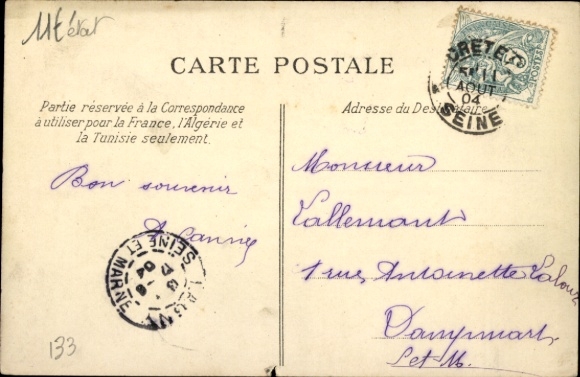 CARTE POSTALE
Partie réservée à la Correspondance
à utiliser pour la France, l'Algérie et
la Tunisie seulement.
Adresse du Destinataire
CRETEIL
AOUT
04
SEINE
POSTES
Bon souvenir
Monsieur
Lallemant
1 rue Antoinette
Dampmart
S et M.
LAGNY
SEINE ET MARNE
04
133